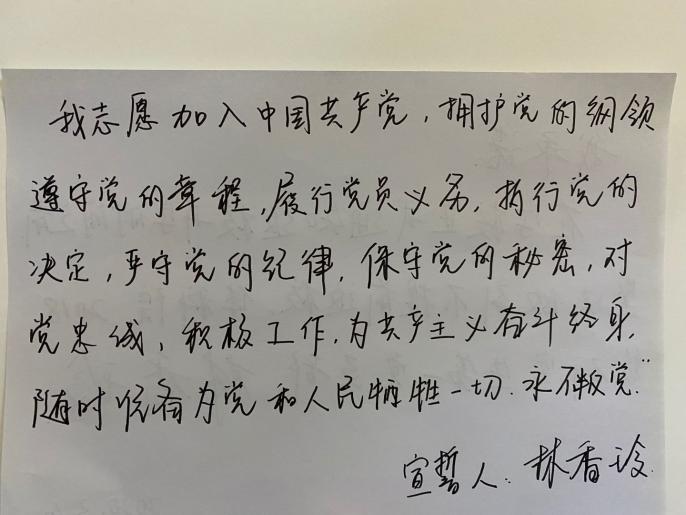 我志愿加入中国共产党，拥护党的纲领
遵守党的章程，履行党员义务，执行党的
决定，严守党的纪律，保守党的秘密，对
党忠诚，积极工作，为共产主义奋斗终身，
随时准备为党和人民牺牲一切，永不叛党”
宣誓人：林香玲